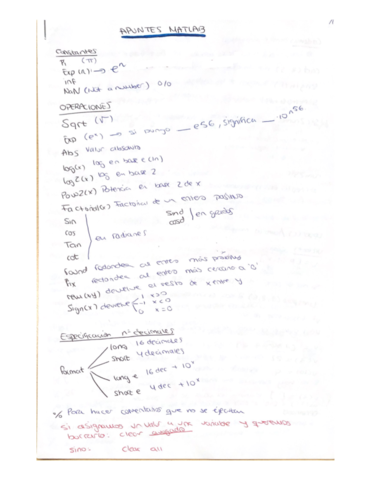 APUNTES MATLAB
Constantes
Pi (π)
Exp(n) → eⁿ
inf
NaN (Not a number) 0/0
OPERACIONES
Sqrt (√‾)
Exp (eˣ) → si ponga __ e56, significa __ 10^56
Abs Valor absoluto
log(x) log en base e (ln)
log2(x) log en base 2
Pow2(x) Potencia en base 2 de x
Factorial(x) Factorial de un entero positivo
Sin
cos
Tan
cot
en radianes
sind
cosd
en grados
round redondea al entero más próximo
fix redondea al entero más cercano a '0'
rem(x,y) devuelve el resto de x entre y
Sign(x) devuelve 1 x>0
-1 x<0
0 x=0
Especificación nº decimales
format
long 16 decimales
short 4 decimales
long e 16 dec + 10ˣ
short e 4 dec + 10ˣ
% Para hacer comentarios que no se ejecutan
si asignamos un valor a una variable y queremos
borrarlo: clear
sino: clear all